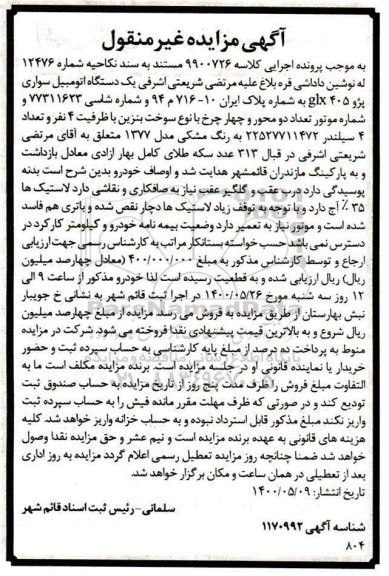 آگهی مزایده غیر منقول
به موجب پرونده اجرایی کلاسه ۹۹۰۰۷۲۶ مستند به سند نکاحیه شماره ۱۲۴۷۶
له نوشین داداشی قره بلاغ علیه مرتضی شریعتی اشرفی یک دستگاه اتومبیل سواری
پژو ۴۰۵ glx به شماره پلاک ایران ۱۰-۷۱۶ م ۹۴ و شماره شاسی ۷۷۳۱۱۶۲۳ و
شماره موتور تعداد دو محور و چهار چرخ با نوع سوخت بنزین با ظرفیت ۴ نفر و تعداد
۴ سیلندر ۲۲۵۲۷۷۱۱۴۷۲ به رنگ مشکی مدل ۱۳۷۷ متعلق به آقای مرتضی
شریعتی اشرفی در قبال ۳۱۳ عدد سکه طلای کامل بهار آزادی معادل بازداشت
و به پارکینگ مازندران قائمشهر هدایت شد و اوصاف خودرو بدین شرح است بدنه
پوسیدگی دارد درب عقب و گلگیر عقب نیاز به صافکاری و نقاشی دارد لاستیک ها
۳۵ ٪ آج دارد و با توجه به توقف زیاد لاستیک ها دچار نقص شده و باتری هم فاسد
شده است و موتور نیاز به تعمیر دارد وضعیت بیمه نامه خودرو و کیلومتر کارکرد در
دسترس نمی باشد حسب خواسته بستانکار مراتب به کارشناس رسمی جهت ارزیابی
ارجاع و توسط کارشناس مذکور به مبلغ ۴۰۰/۰۰۰/۰۰۰ (معادل چهارصد میلیون
ریال) ریال ارزیابی شده و به قطعیت رسیده است لذا خودرو مذکور از ساعت ۹ الی
۱۲ روز سه شنبه مورخ ۱۴۰۰/۰۵/۲۶ در اجرا ثبت قائم شهر به نشانی خ جویبار
نبش بهارستان از طریق مزایده به فروش می رسد. مزایده از مبلغ چهارصد میلیون
ریال شروع و به بالاترین قیمت پیشنهادی نقدا فروخته می شود. شرکت در مزایده
منوط به پرداخت ده درصد از مبلغ پایه کارشناسی به حساب سپرده ثبت و حضور
خریدار یا نماینده قانونی او در جلسه مزایده است. برنده مزایده مکلف است ما به
التفاوت مبلغ فروش را ظرف مدت پنج روز از تاریخ مزایده به حساب صندوق ثبت
تودیع کند و در صورتی که ظرف مهلت مقرر مانده فیش را به حساب سپرده ثبت
واریز نکند مبلغ مذکور قابل استرداد نبوده و به حساب خزانه واریز خواهد شد. کلیه
هزینه های قانونی به عهده برنده مزایده است و نیم عشر و حق مزایده نقدا وصول
خواهد شد ضمنا چنانچه روز مزایده تعطیل رسمی اعلام گردد مزایده به روز اداری
بعد از تعطیلی در همان ساعت و مکان برگزار خواهد شد.
تاریخ انتشار: ۱۴۰۰/۰۵/۰۹
سلمانی- رئیس ثبت اسناد قائم شهر
شناسه آگهی ۱۱۷۰۹۹۲
۸۰۴